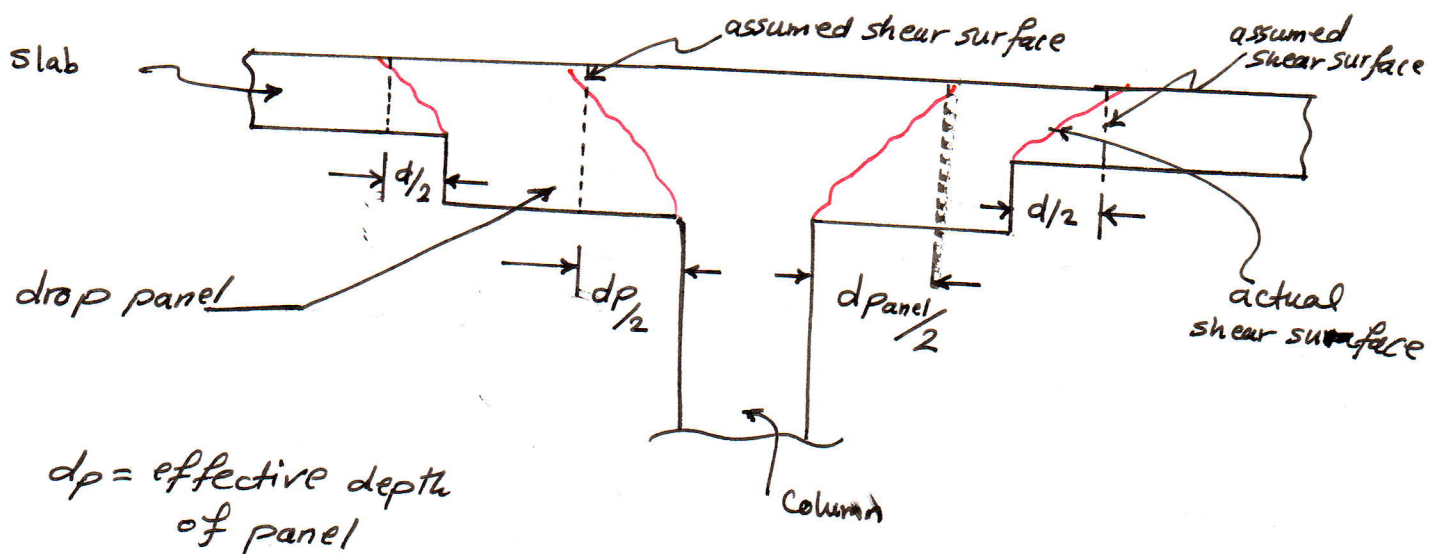 assumed shear surface
assumed
shear surface
slab
d/2
d/2
drop panel
dp/2
dpanel/2
actual
shear surface
dp = effective depth
of panel
Column